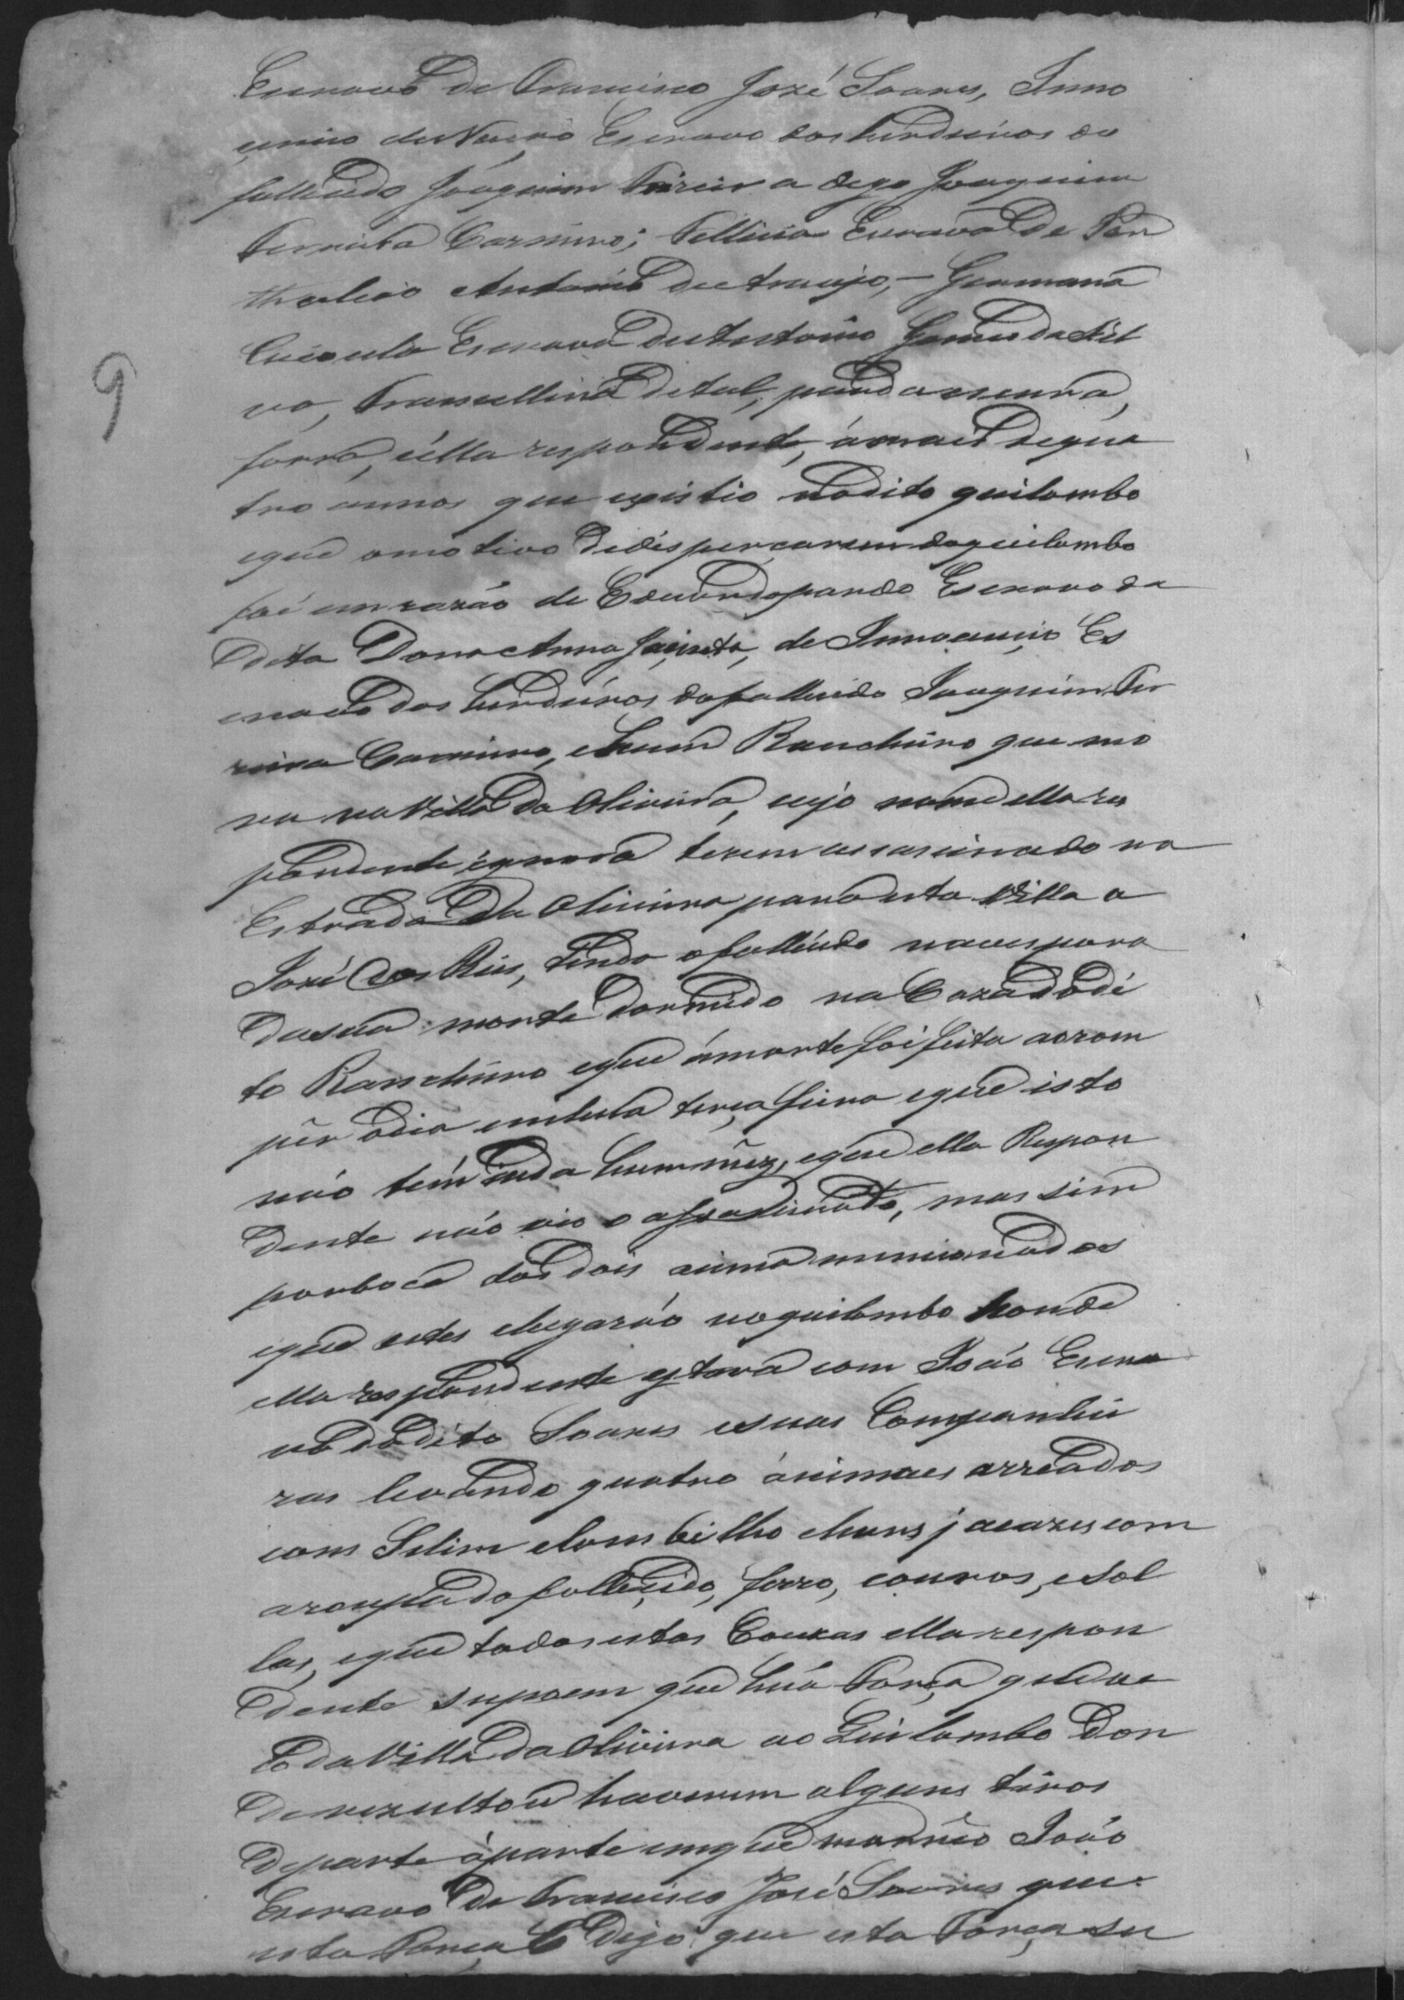 Escravo de Francisco José Soares, Inno
cencio de Nação Escravo dos herdeiros do
fallecido Joaquim Pereira digo Joaquim
Ferreira Carneiro; Fellicia Escrava de Pan
thaleão Antonio de Araujo, – Germana
Crioula Escrava de Antonio Gomes da Sil
va, Francellina de tal, parda escura,
forra, e ella respondente, á mais de qua
tro annos que existio no dito quilombo
e que o motivo de dispersarem do quilombo
foi em razão de Eduardo pardo Escravo da
Dita Dona Anna Jacinta, de Innocencio Es
cravo dos herdeiros do fallecido Joaquim Fer
reira Carneiro, e hum Rancheiro que mo
ra na Villa da Oliveira, cujo nome ella res
pondente ignora terem assassinado na
Estrada da Oliveira para esta Villa a
José dos Reis, tendo o fallecido na vespora
da sua morte dormido na Caza do di
to Rancheiro e que a morte foi feita ao rom
pêr o dia em huma terça feira e que isto
não tem inda hum mêz, e que ella Respon
dente não vio o assassinato, mas sim
por boca dos dois acima mencionados
e que estes chegarão no quilombo honde
ella respondente estava com João Escra
vo do dito Soares e suas Companhei
ras levando quatro animaes arreados
com Selim e lombilho e huns jacazes com
a roupa do fallecido, ferro, couros, e Sol
las, e que todas estas Couzas ella respon
dente supoem que hua Força que ve
io da Villa da Oliveira ao Quilombo Don
de rezultou haverem alguns tiros
de parte á parte em que morreo João
Escravo de Francisco José Soares que
esta Força digo que esta Força se